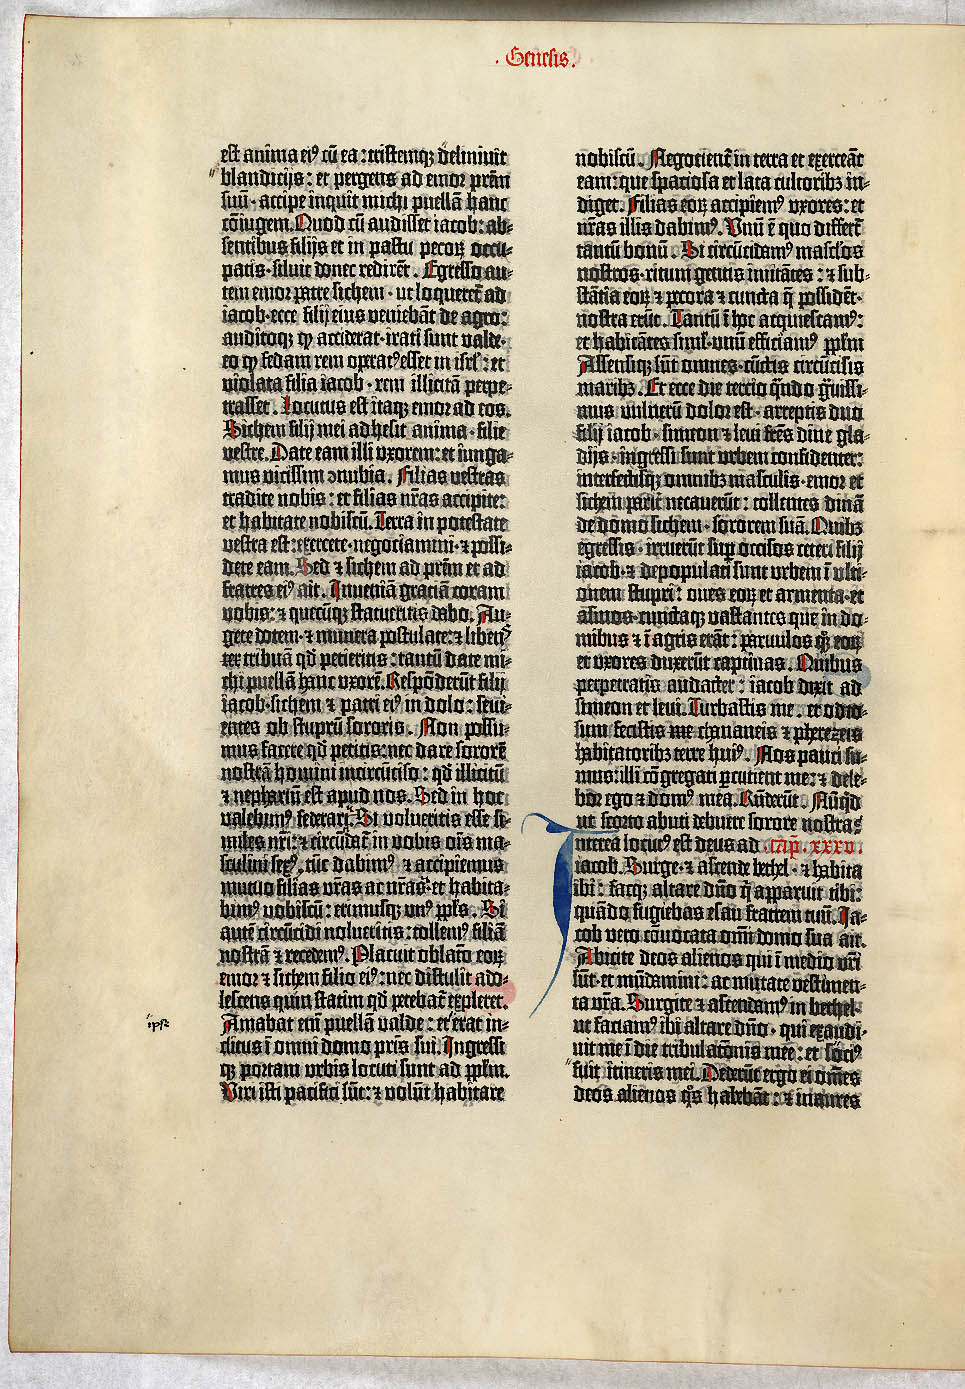 . Genesis .
est anima eiꝰ cū ea : tristemqꝫ deliniuit
blandicijs : et pergens ad emor prēm
suū · accipe inquit michi puellā hanc
cōiugem. Quod cū audisset iacob : ab-
sentibus filijs et in pastu pecoꝝ occu-
patis · siluit donec redirēt . Egresso au-
tem emor patre sichem · ut loqueret̄ ad
iacob · ecce filij eius veniebāt de agro :
auditoqꝫ qꝙ acciderat · irati sunt valde ·
eo qꝙ fedam rem operatꝰ esset in isrl̄ : et
violata filia iacob · rem illicitā perpe-
trasset . Locutus est itaqꝫ emor ad eos.
Sichem filij mei adhesit anima · filie
vestre. Date eam illi vxorem : et iunga-
mus vicissim ɔnubia . Filias vestras
tradite nobis : et filias nr̄as accipite :
et habitate nobiscū. Terra in potestate
vestra est : exercete · negociamini · ⁊ possi-
dete eam. Sed ⁊ sichem ad prēm et ad
fratres eiꝰ ait . Inueniā graciā coram
vobis : ⁊ quecūqꝫ statueritis dabo. Au-
gete dotem · ⁊ munera postulate : ⁊ libent̄
ter tribuā qd̄ petieritis : tantū date mi-
chi puellā hanc vxorē. Respōderūt filij
iacob · sichem ⁊ patri eiꝰ in dolo : seui-
entes ob stuprū sororis . Non possu-
mus facere qd̄ petitis : nec dare sororē
nostrā homini incircūciso : qd̄ illicitū
⁊ nephariū est apud nos . Sed in hoc
valebimꝰ federari. Si volueritis esse si-
miles nr̄i : ⁊ circūcidat̄ in vobis oīs ma-
sculini sexꝰ, tūc dabimꝰ ⁊ accipiemus
mutuo filias vr̄as ac nr̄as · et habita-
bimꝰ vobiscū : erimusqꝫ vnꝰ ppl̄s . Si
autē circūcidi nolueritis : tollemꝰ filiā
nostrā ⁊ recedemꝰ. Placuit oblatō eoꝝ
emor ⁊ sichem filio eiꝰ : nec distulit ado-
lescens quin statim qd̄ petebat̄ expleret.
Amabat eni puellā valde : et erat in-
ipse
clitus ī omni domo pris sui. Ingressi
qꝫ portam vrbis locuti sunt ad ppl̄m.
Viri isti pacifici sūt : ⁊ volūt habitare
nobiscū . Negocient̄ in terra et exerceāt
eam : que spaciosa et lata cultoribꝫ in-
diget. Filias eoꝝ accipiemꝰ vxores : et
nr̄as illis dabimꝰ. Vnū ē quo differt̄
tantū bonū . Si circūcidamꝰ mascl̄os
nostros · ritum gentis imitātes : ⁊ sub-
stātia eoꝝ ⁊ pecora ⁊ cuncta q̄ possidēt ·
nostra erūt. Tantū ī hoc acquiescamꝰ :
et habitātes siml̄ · vnū efficiamꝰ ppl̄m
Assensiqꝫ sūt omnes · cūctis circūcisis
maribꝫ. Et ecce die tercio q̄ndo g̃uissi-
mus vulnerū dolor est · arreptis duo
filij iacob · simeon ⁊ leui frēs dine gla-
dijs · ingressi sunt vrbem confidenter :
interfectisqꝫ omnibꝫ masculis · emor et
sichem parit̄ necauerūt : tollentes dinā
de domo sichem · sororem suā . Quibꝫ
egressis · irruerūt sup̄ occisos ceteri filij
iacob · ⁊ depopulati sunt vrbem ī vlci-
onem stupri : oues eoꝝ et armenta · et
asinos · cunctaqꝫ vastantes que in do-
mibus ⁊ ī agris erāt : paruulos qꝫ eoꝝ
et vxores duxerūt captiuas . Quibus
perpetratis audacter : iacob dixit ad
simeon et leui. Turbastis me . et odio-
sum fecistis me chananeis ⁊ pherezeis
habitatoribꝫ terre huiꝰ. Nos pauci su-
mus : illi cōgregati percutient me : ⁊ dele-
bor ego ⁊ domꝰ mea. Rn̄derūt . Nūqd
ut scorto abuti debuere sorore nostra :
Interea locutꝰ est deus ad . cap̄. xxxv.
iacob. Surge · ⁊ ascende bethel · ⁊ habita
ibi : facqꝫ altare dn̄o q̄ apparuit tibi :
quādo fugiebas esau fratrem tuū. Ia-
cob vero cōuocata omī domo sua ait.
Abicite deos alienos qui ī medio vr̄i
sūt · et mūdamini : ac mutate vestimen-
ta vr̄a. Surgite ⁊ ascendamꝰ in bethel ·
ut faciamꝰ ibi altare dn̄o · qui exaudi-
uit me ī die tribulatōnis mee : et sociꝰ
fuit itineris mei. Dederūt ergo ei om̄es
deos alienos q̄s habebāt : ⁊ inaures